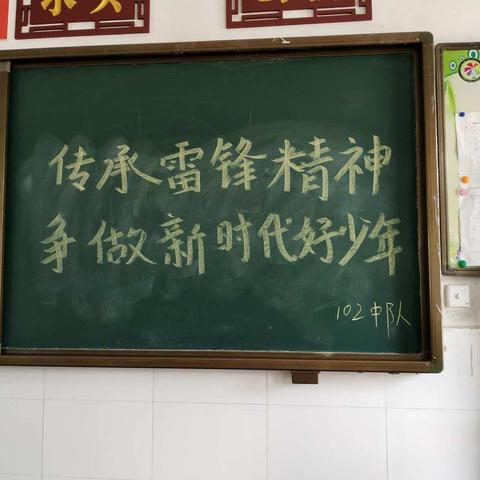 传承雷锋精神
争做新时代好少年
102中队